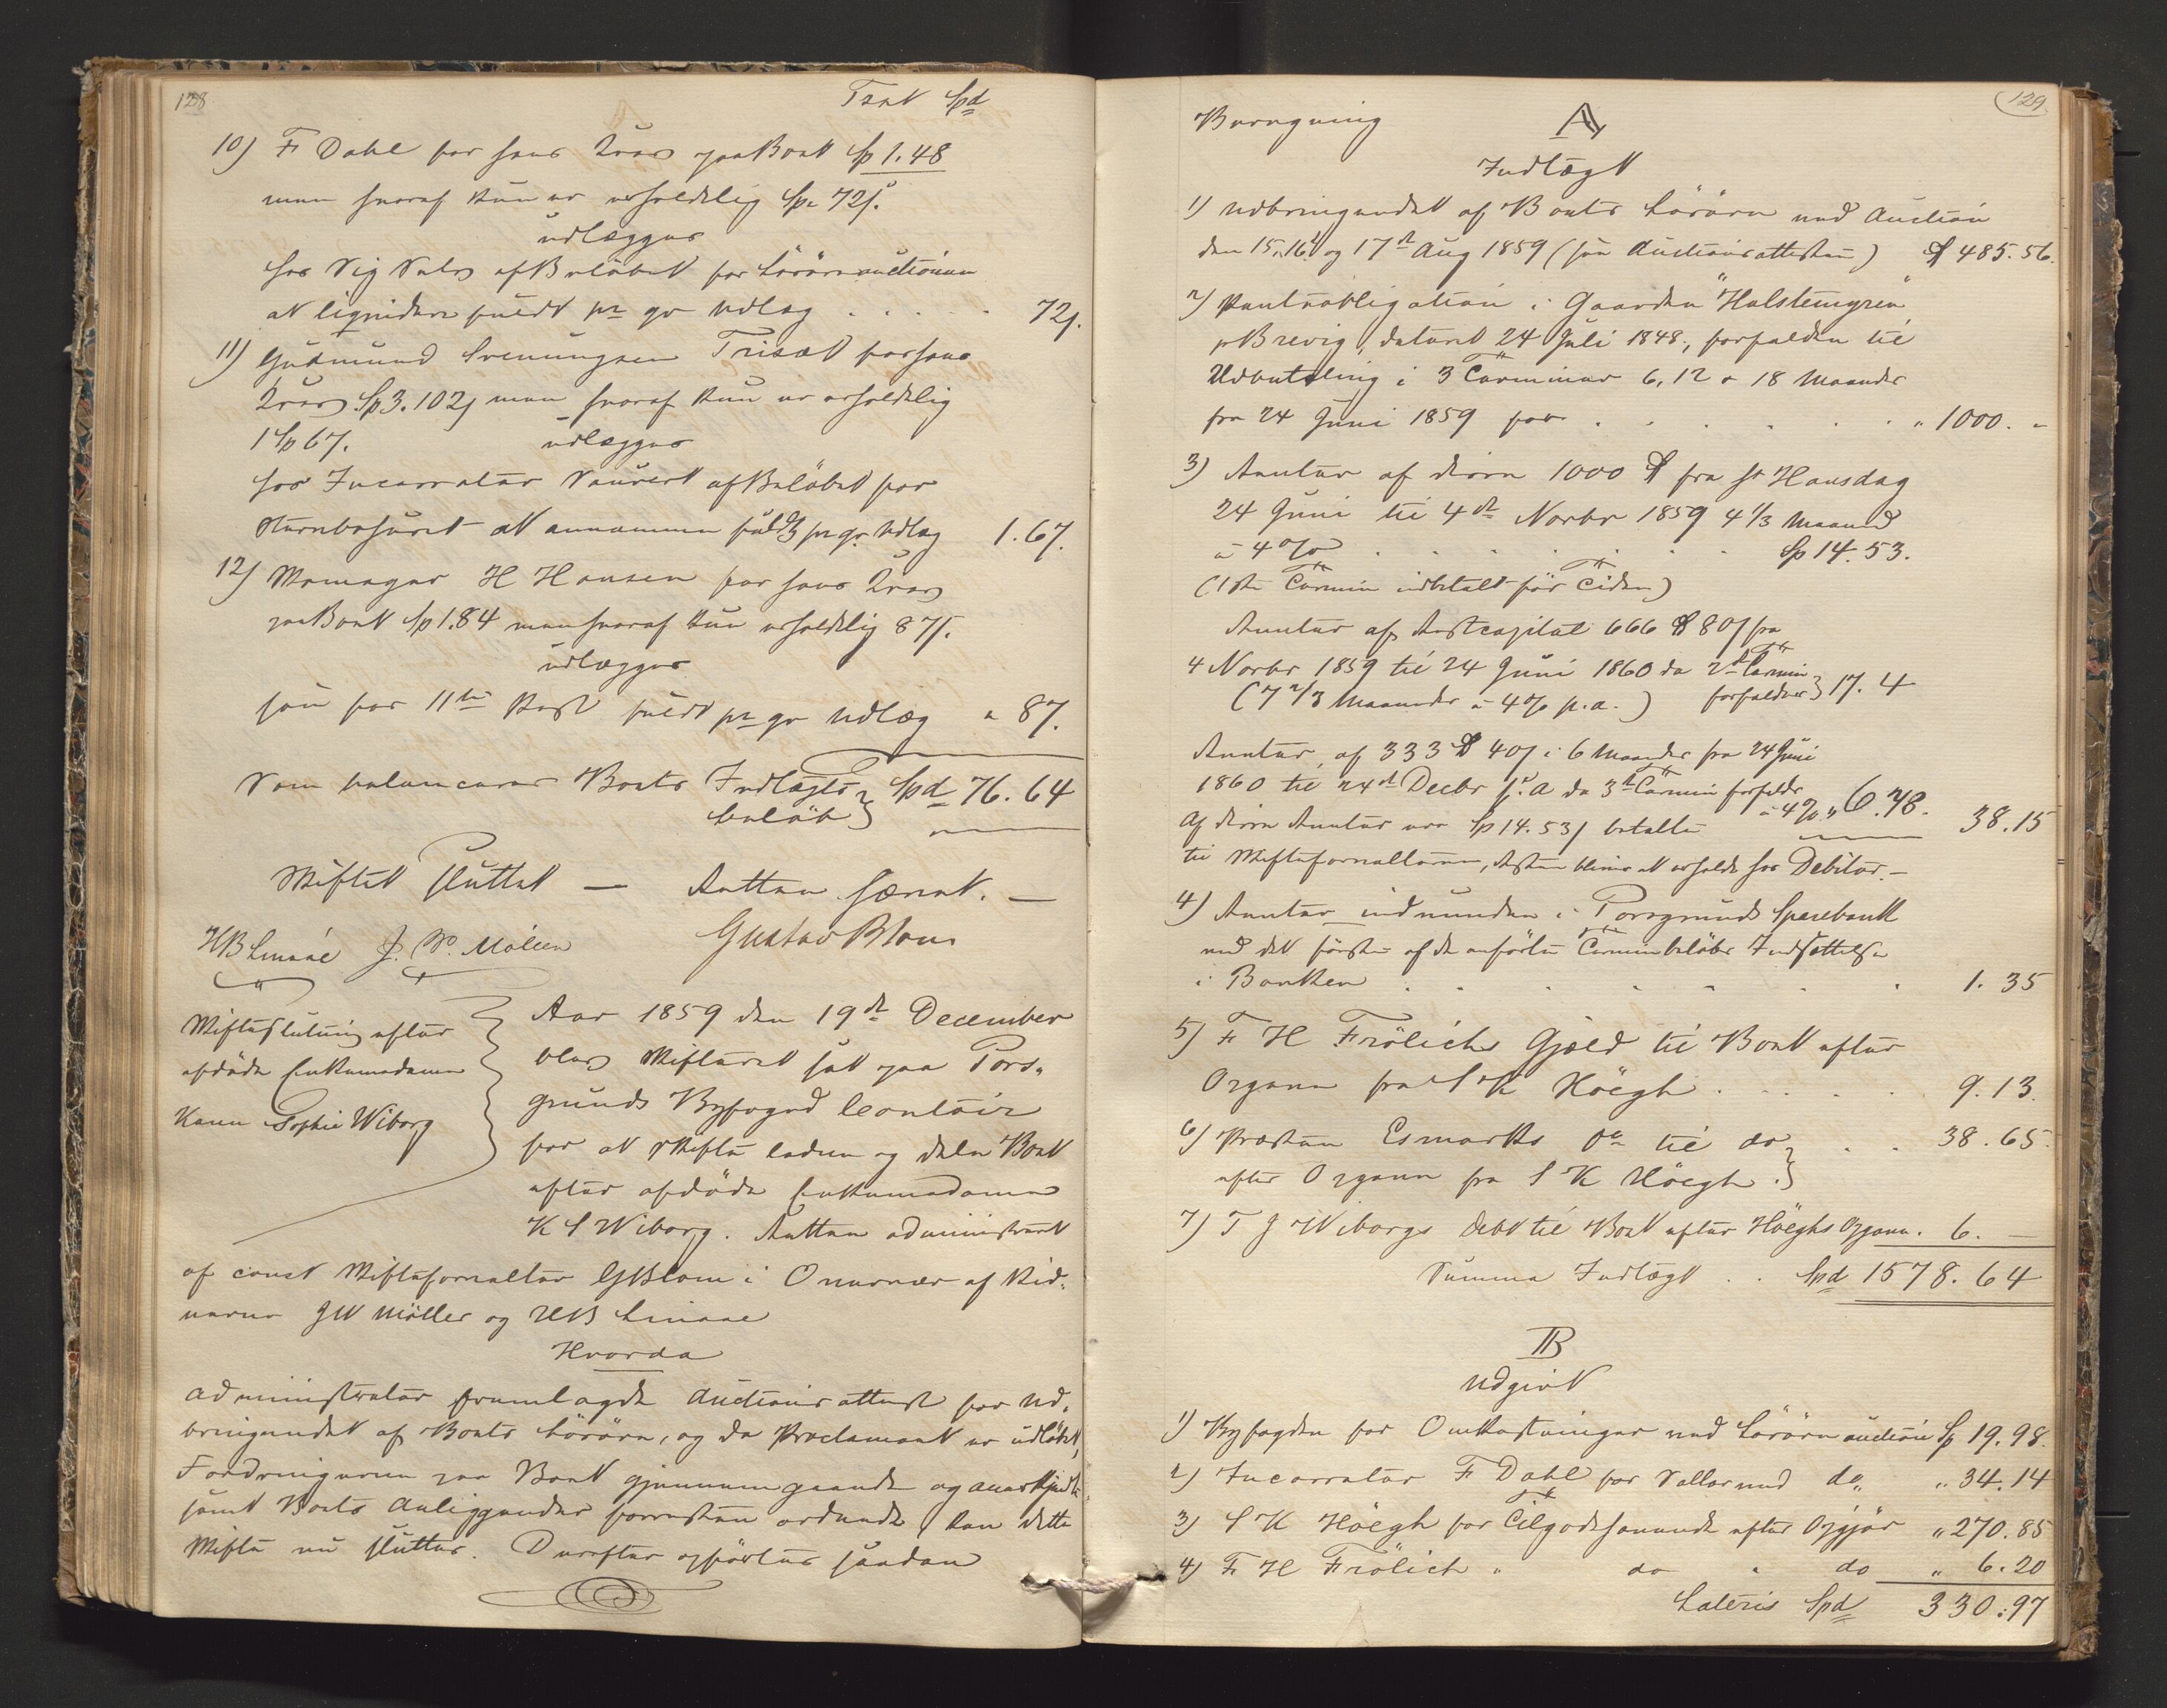 128
Trspt Spd
10) F Dahl for hans Krav paa Boet Sp 1.48
men hvoraf kun er erholdelig Sp. 72 s.
udlægges
hos Sig Selv af Beløbet for Løsøreauctionen
at liqvidere fuldt pr qv Udlæg . . . . . 72 s.
11) Gudmund Svenungsen Trisæt for hans
Krav Sp 3.102 s men hvoraf kun er erholdelig
1 Sp 67.
udlægges
hos Incassator Dauverk af Beløbet for
Stervbohuset at annamme fuldt pr qv. Udlæg 1.67.
12) Skomager H Hansen for hans Krav
paa Boet Sp 1.84 men hvoraf kun erholdelig 87 s.
udlægges
som for 11te Post fuldt pr qv Udlæg " 87.
Som balancerer Boets Indtægts
beløb } Spd 76.64
Skiftet sluttet — Retten hævet. —
HB Linaae J. W. Møller Gustav Blom
Skifteslutning efter
afdøde Enkemadame
Karen Sophie Wiborg
Aar 1859 den 19de December
blev Skifteret sat paa Pors-
grunds Byfoged Contoir
for at skifte ledem og dele Boet
efter afdøde Enkemadame
K S Wiborg. Retten administreret
af const Skifteforvalter GBlom i Overvær af Vid-
nerne JW Møller og HB Linaae
Hvorda
Administrator fremlagde Auctionsattest for Ud-
bringendet af Boets Løsøre, og da Proclamaet er udløbet,
Fordringerne paa Boet gjennemgaaede og anerkjendte
samt Boets Anliggender forresten ordnede, kan dette
Skifte nu sluttes. Derefter opførtes saadan
129
Beregning A
Indtægt
1) Udbringendet af Boets Løsøre ved Auction
den 15, 16 og 17de Aug 1859 (see Auctionsattesten) Spd 485.56.
2) Panteobligation i Gaarden "Halstemyren"
p Brevig, dateret 24 Juli 1848, forfalden til
Udbetaling i 3 Terminer 6, 12 & 18 Maaneder
fra 24 Juni 1859 for . . . . . . " 1000. "
3) Renter af disse 1000 Spd fra St Hansdag
24 Juni til 4de Novbr 1859 4 1/3 Maaned
a 4 % . . . . . . Sp 14.53.
(1ste Termin indbetalt før Tiden)
Renter af Restcapital 666 Spd 80 s fra
4 Novbr 1859 til 24 Juni 1860 da 2den Termin
(7 2/3 Maaneder a 4 % p.a.) forfalder } 17.4
Renter af 333 Spd 40 s i 6 Maaneder fra 24 Juni
1860 til 24de Decbr s. A da 3de Termin forfalder
a 4 % " 6.78.
Af disse Renter ere Sp 14.53 s betalte 38.15
til Skifteforvalteren, Resten blive at erholde hos Debitor. —
4) Renter indvunden i Porsgrunds Sparebank
ved det første af de anførte Terminbeløbs Indsættelse
i Banken . . . . . . . 1.35
5) F H Frölichs Gjæld til Boet efter
Opgave fra S K Höegh . . . . . 9.13.
6) Præsten Esmarks do til do } . . 38.65.
efter Opgave fra S K Höegh.
7) T J Wiborgs Debet til Boet efter Höeghs Opgave. 6. —
Summa Indtægt . . Spd 1578.64
B
Udgivt
1) Byfogden for Omkostninger ved Løsøreauction Sp 19.98.
2) Incassator F Dahl for Sallar ved do " " 34.14
3) S K Höegh for Tilgodehavende efter Opgjør " 270.85
4) F H Frölich " do " do " 6.20
Lateris Spd 330:97